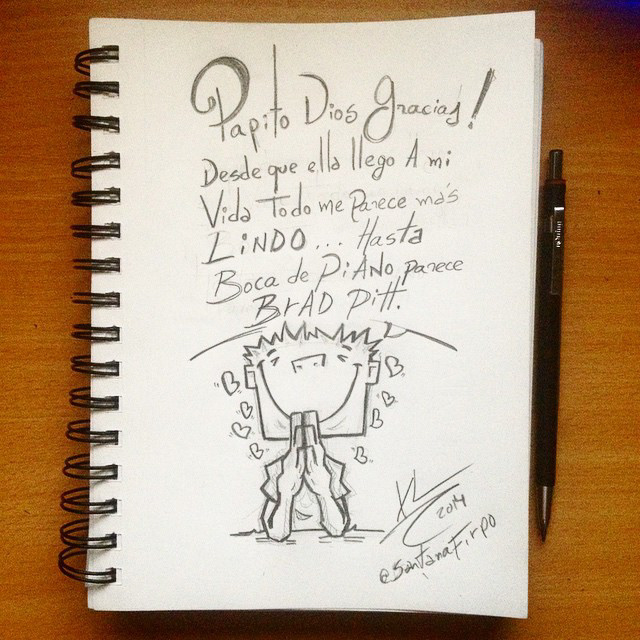 Papito Dios gracias!
Desde que ella llego A mi
Vida Todo me Parece más
LINDO... Hasta
Boca de PiANo parece
BrAD Pitt.
2014
@SantanaFirpo